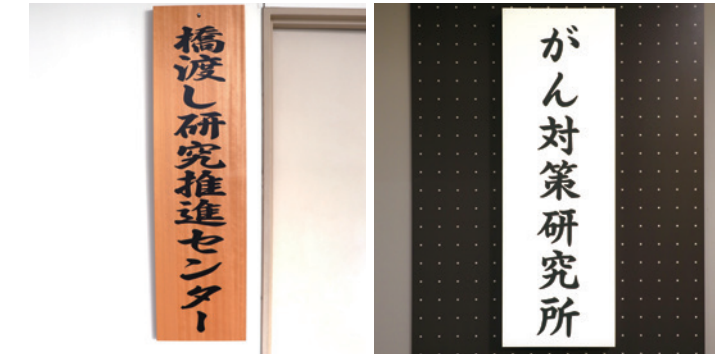 橋渡し研究推進センター
がん対策研究所